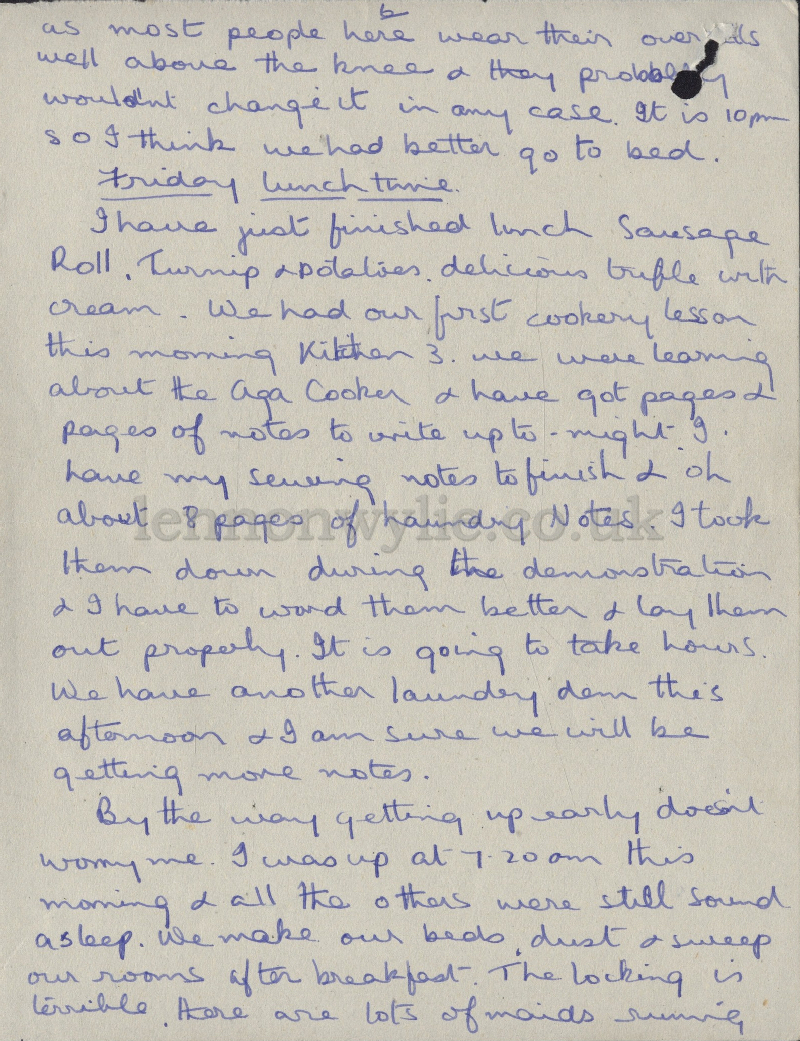 6
as most people here wear their overalls
well above the knee & they probably
wouldn't change it in any case. It is 10pm
so I think we had better go to bed.
Friday lunch time.
I have just finished lunch Sausage
Roll, Turnip & potatoes. delicious trifle with
cream. We had our first cookery lesson
this morning Kitchen 3. we were learning
about the Aga Cooker & have got pages &
pages of notes to write up to-night. I
have my sewing notes to finish & oh
about 8 pages of Laundry Notes. I took
them down during the demonstration
& I have to word them better & lay them
out properly. It is going to take hours.
We have another laundry dem this
afternoon & I am sure we will be
getting more notes.
By the way getting up early doesn't
worry me. I was up at 7.20 am this
morning & all the others were still sound
asleep. We make our beds, dust & sweep
our rooms after breakfast. The locking is
terrible. there are lots of maids running
lennonwylie.co.uk